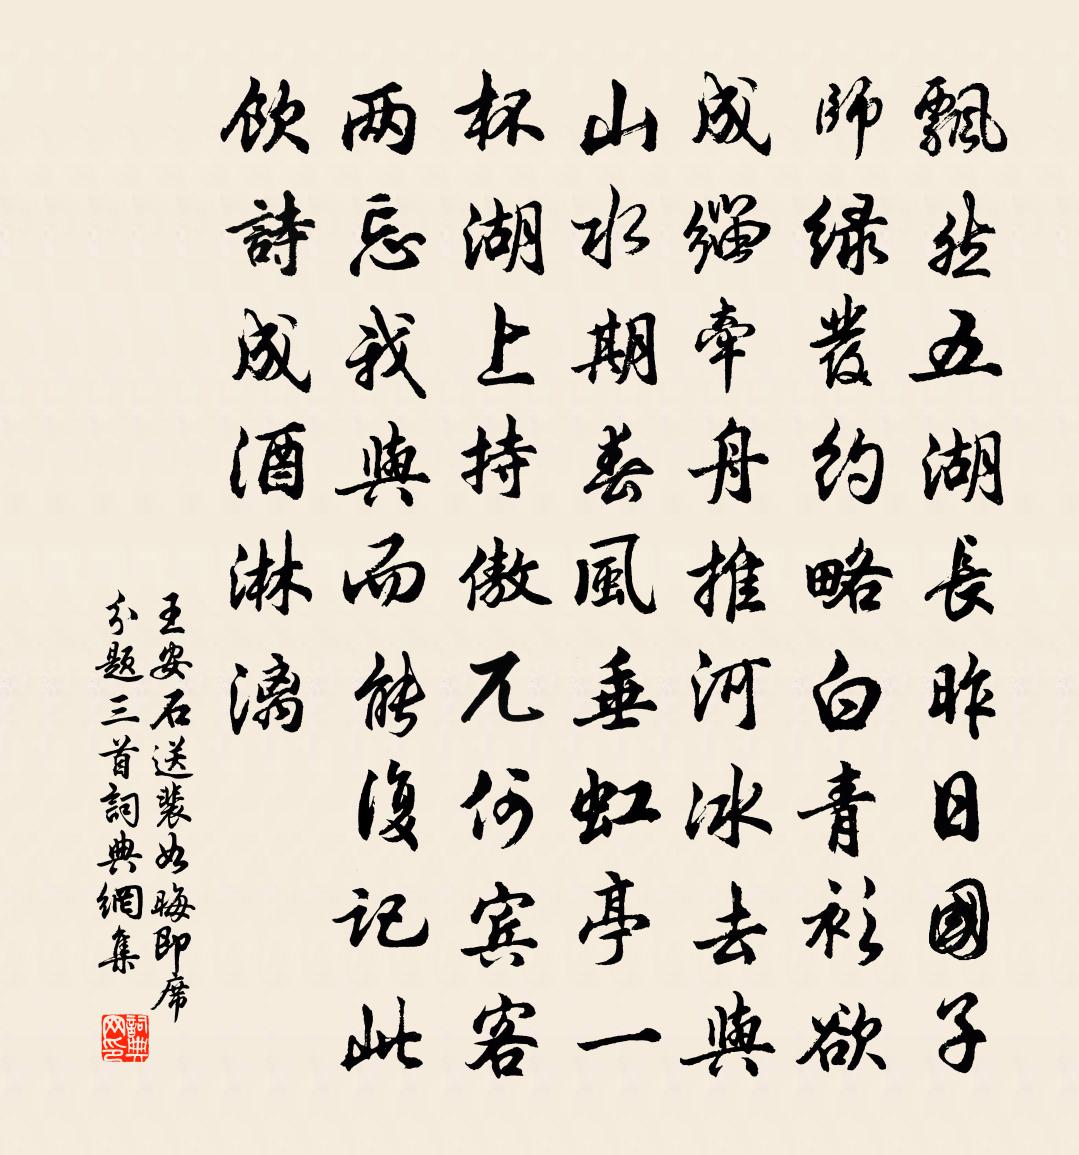 飄然五湖長昨日國子
師緑發約略白青衫欲
成緇牽舟推河冰去與
山水期春風垂虹亭一
杯湖上持傲兀何賓客
两忘我與而能復記此
飲詩成酒淋漓
王安石送裴如晦即席
分題三首詞典網集
詞典
网印